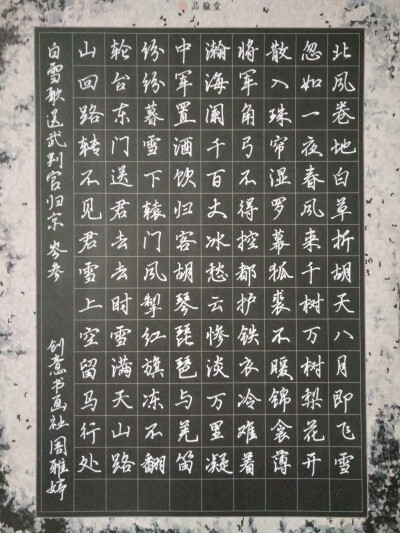 品翰堂
北风卷地白草折胡天八月即飞雪
忽如一夜春风来千树万树梨花开
散入珠帘湿罗幕狐裘不暖锦衾薄
将军角弓不得控都护铁衣冷难着
瀚海阑千百丈冰愁云惨淡万里凝
中军置酒饮归客胡琴琵琶与羌笛
纷纷暮雪下辕门风掣红旗冻不翻
轮台东门送君去去时雪满天山路
山回路转不见君雪上空留马行处
白雪歌送武判官归京 岑参 创意书画社 周雅婷